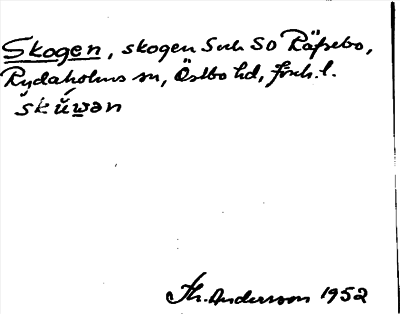 Skogen, skogen S och SO Räfsebo,
Rydaholms sn, Östbo hd, Jönk. l.
skúwan
Th. Andersson 1952